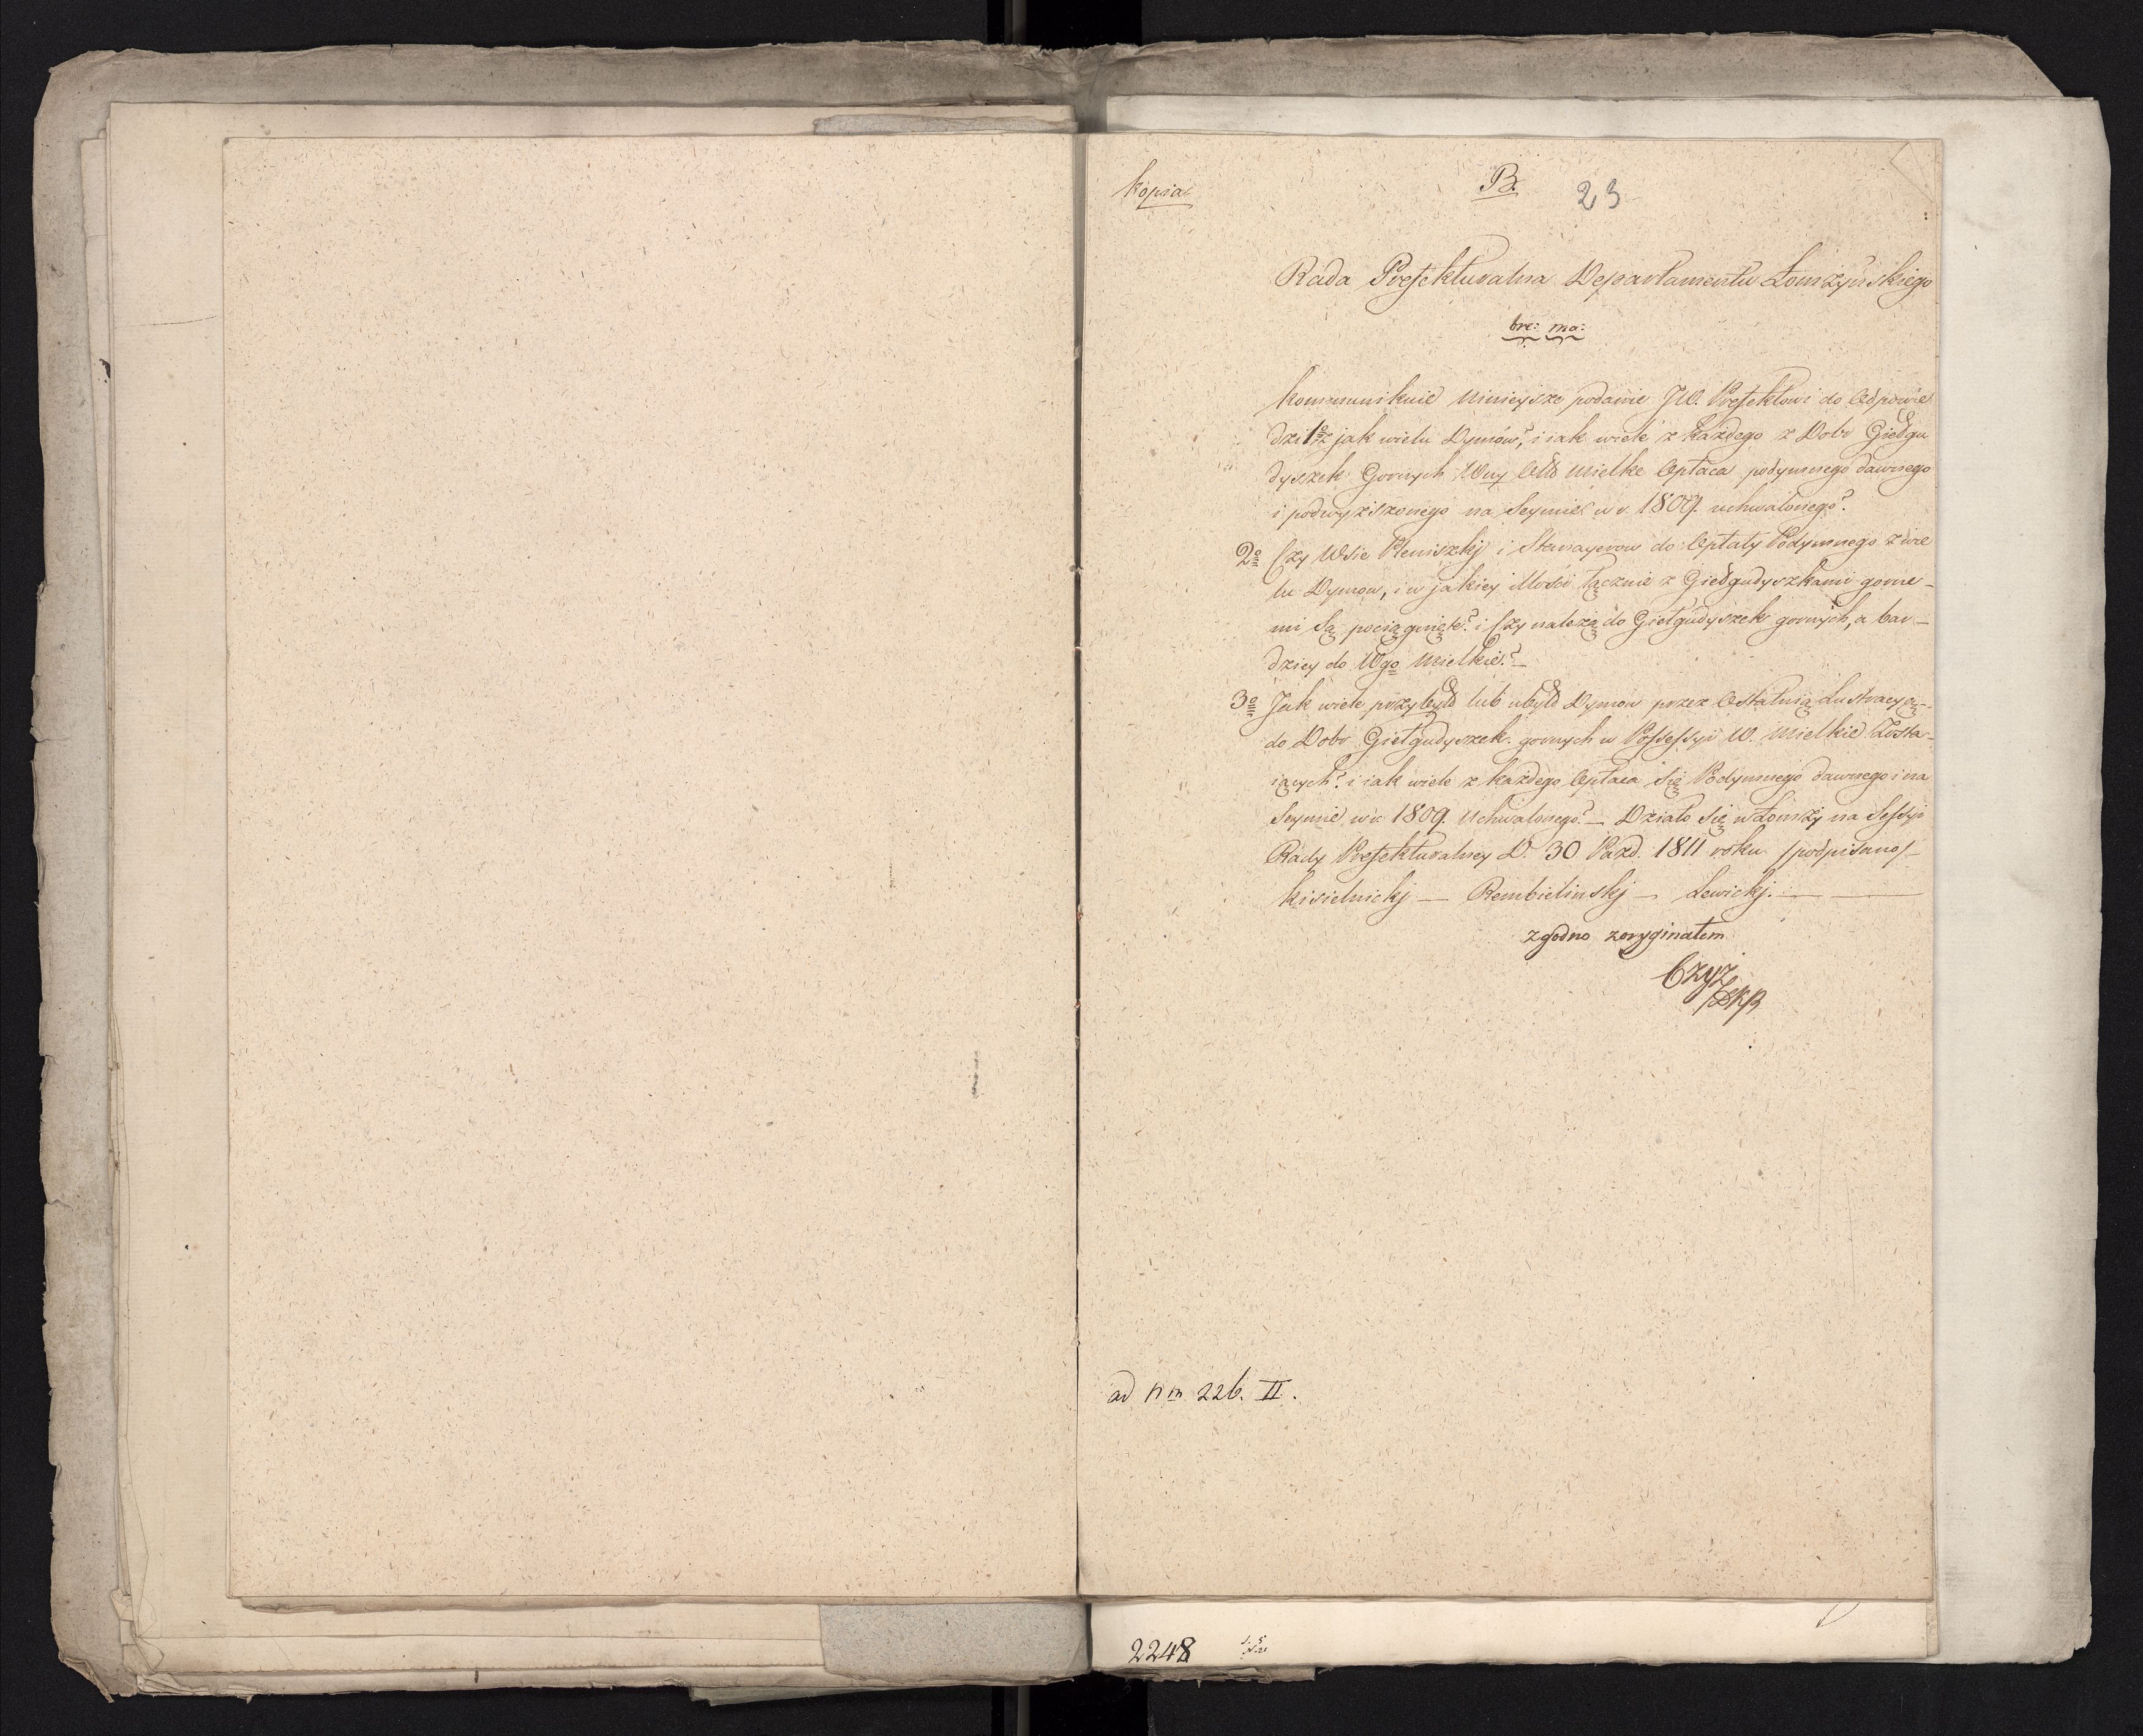 kopia
B.
23
Rada Prefekturalna Departamentu Łomżyńskiego
bre: ma:
kommunikuie Ninieysze podanie JW. Prefektowi do Odpowie
dzi 1º z jak wielu Dymów, i iak wiele z każdego z Dobr Giełgu
dyszek Gornych Wny Mielke Opłaca podymnego dawnego
i podwyższonego na Seymie w r. 1809. uchwalonego?
2º Czy Wsie Pleniszkj i do Opłaty Podymnego z wie
lu Dymow, i w jakiey Ilości łącznie z Giełgudyszkami gorne-
mi Są pociągnięte? i Czy należą do Giełgudyszek gornych, a bar-
dziey do Wgo Mielkie?—
3º Jak wiele przybyło lub ubyło Dymow przez Ostatnią Lustracyą-
do Dobr Giełgudyszek gornych w Possessyi W. Mielkie Zosta-
iących? i iak wiele z każdego Opłaca Się Podymnego dawnego i na
Seymie w r. 1809. Uchwalonego?— Działo Się w Łomży na Sessyi
Rady Prefekturalney D. 30 Pazd. 1811 roku /podpisano/—
kisielnickj — Rembielinskj — Lewickj. —
zgodno z oryginałem
Czyż
ad Nm 226. II.
2248